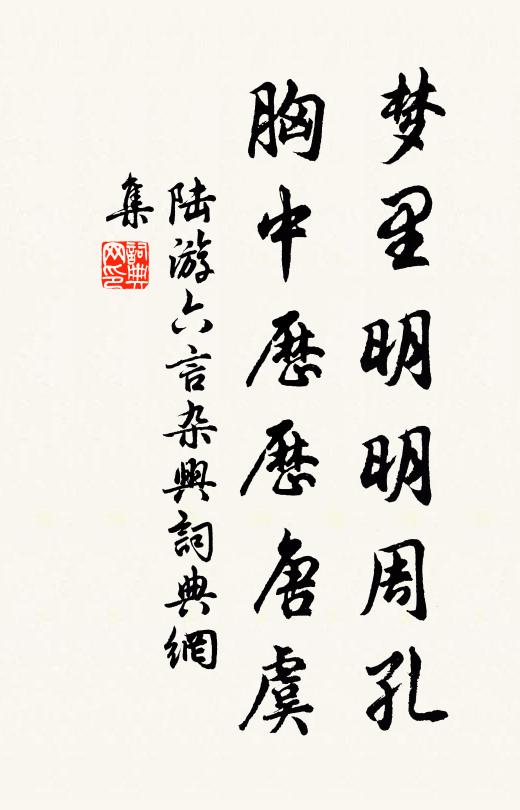 梦里明明周孔
胸中历历唐虞
陆游六言杂興詞典網
集
詞典网印